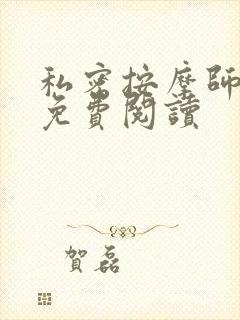 私密按摩師
免費閱讀
賀磊